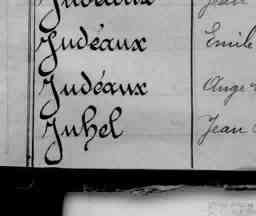 Judéaux Jean
Judéaux Emile
Judéaux Ange
Juhel Jean